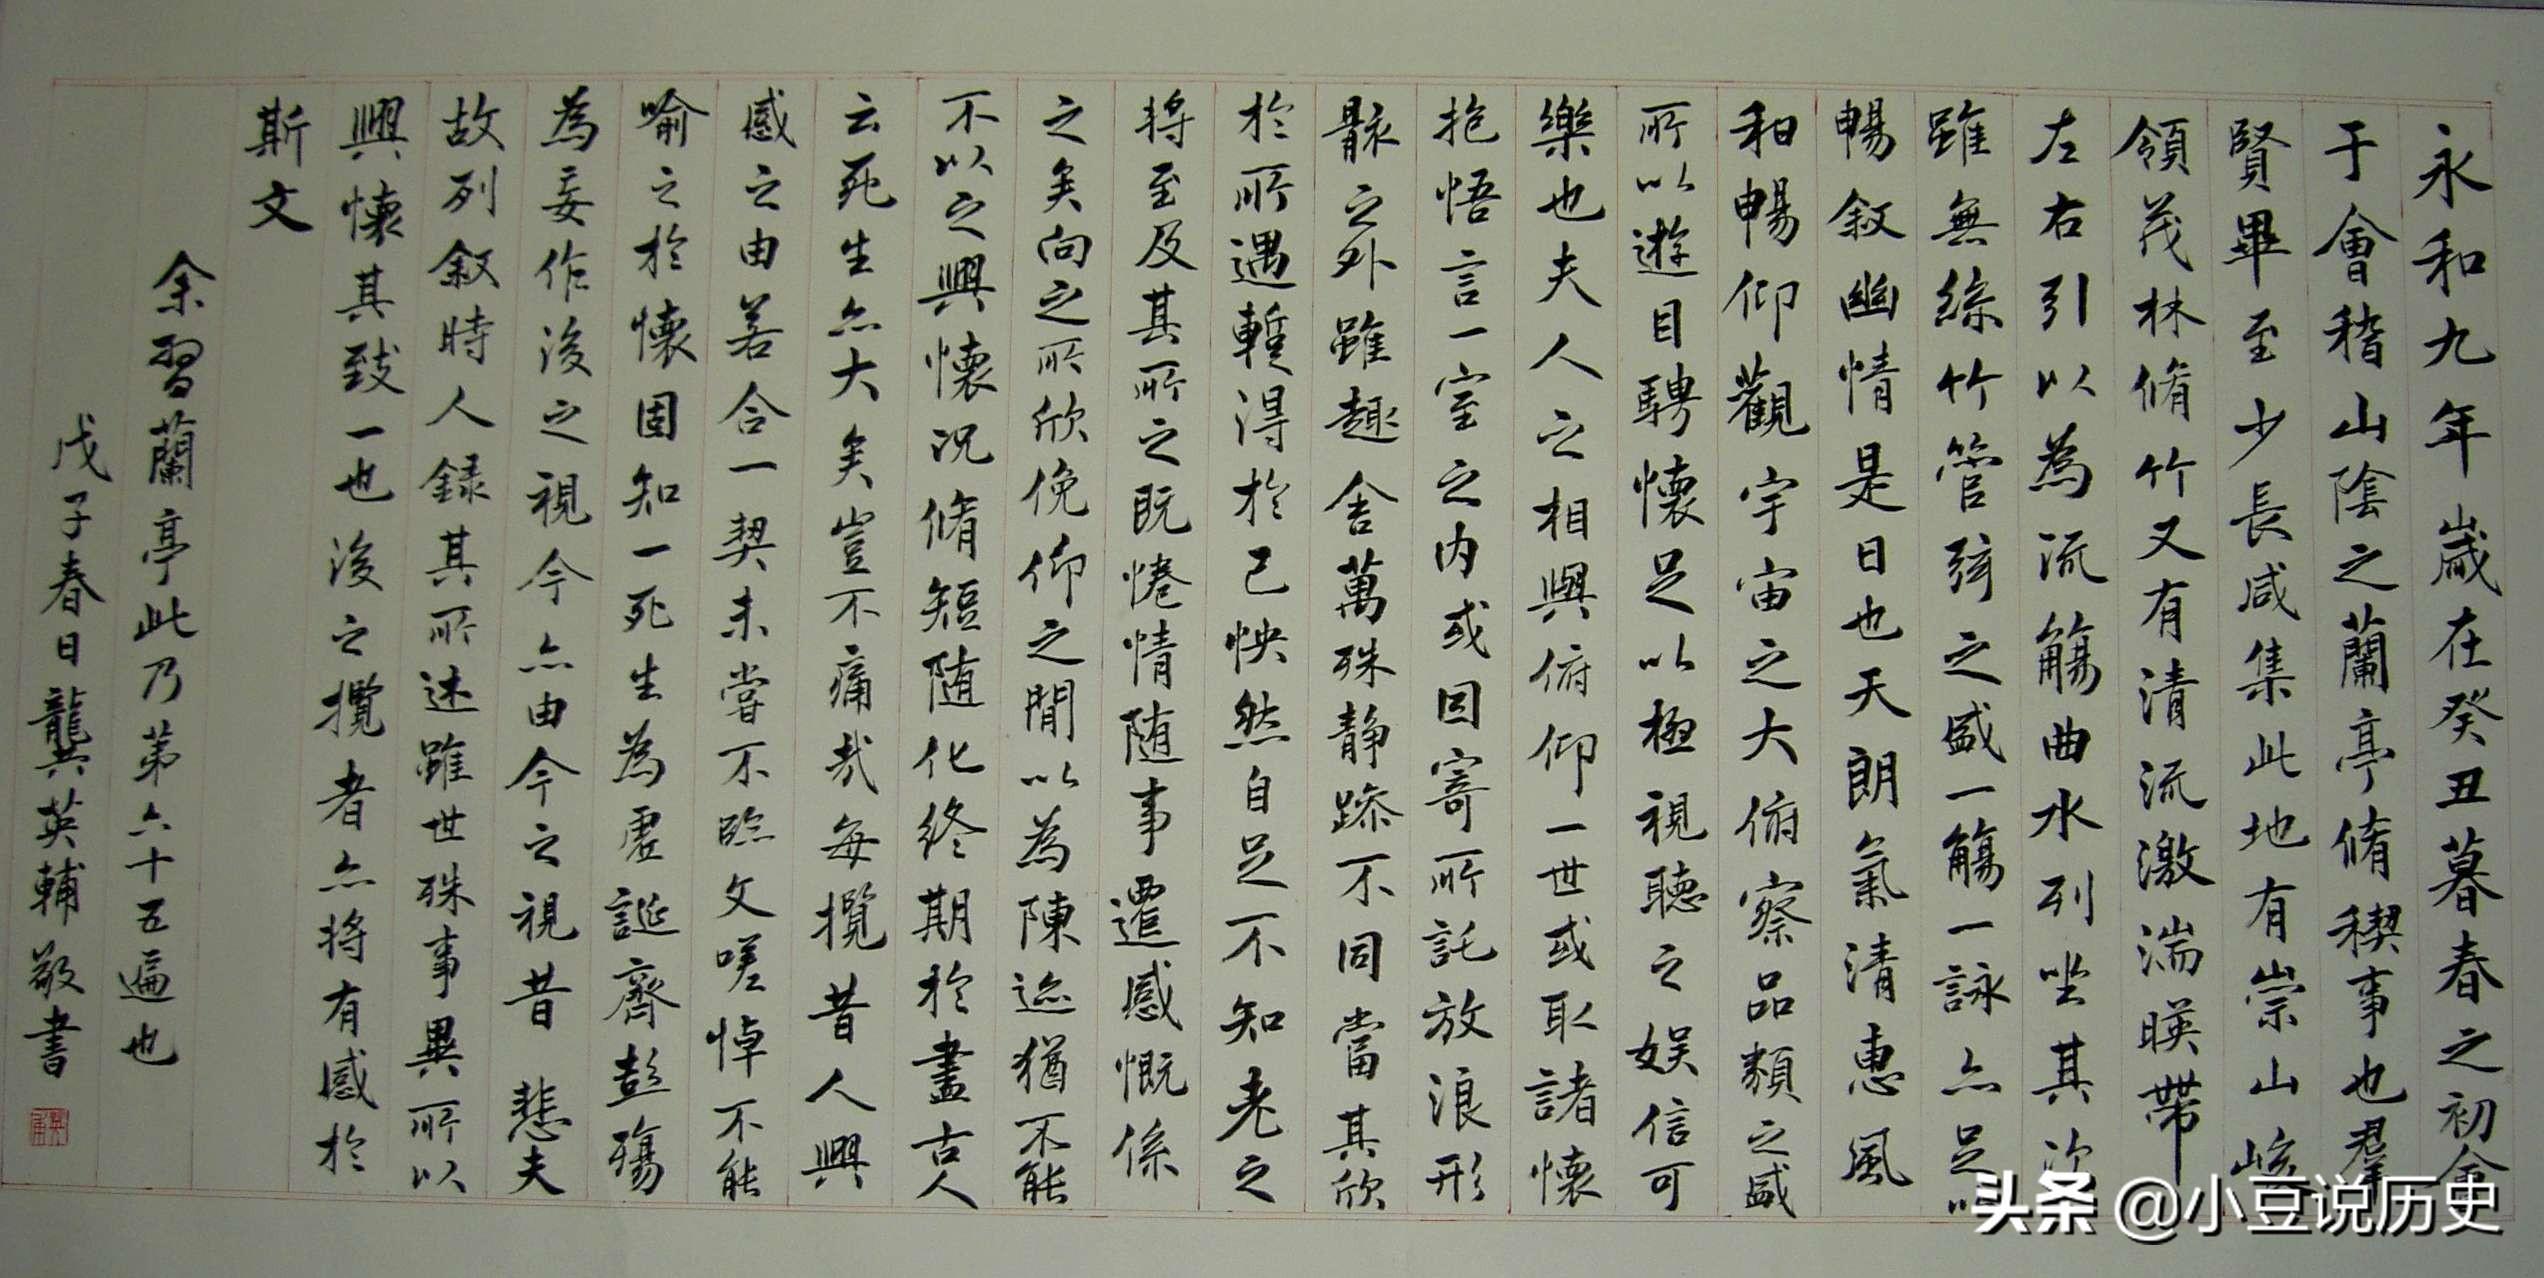 永和九年歲在癸丑暮春之初會
于會稽山陰之蘭亭脩稧事也羣
賢畢至少長咸集此地有崇山峻
領茂林脩竹又有清流激湍暎帶
左右引以為流觴曲水列坐其次
雖無絲竹管弦之盛一觴一詠亦足以
暢敘幽情是日也天朗氣清惠風
和暢仰觀宇宙之大俯察品類之盛
所以遊目騁懷足以極視聽之娛信可
樂也夫人之相與俯仰一世或取諸懷
抱悟言一室之內或因寄所託放浪形
骸之外雖趣舍萬殊静躁不同當其欣
於所遇蹔得於己怏然自足不知老之
將至及其所之既惓情随事遷感慨係
之矣向之所欣俛仰之閒以為陳迹猶不能
不以之興懷況脩短随化終期於盡古人
云死生亦大矣豈不痛哉每攬昔人興
感之由若合一契未嘗不臨文嗟悼不能
喻之於懷固知一死生為虛誕齊彭殤
為妄作後之視今亦由今之視昔悲夫
故列敘時人録其所述雖世殊事異所以
興懷其致一也後之攬者亦將有感於
斯文
余習蘭亭此乃第六十五遍也
戊子春日龔英輔敬書
英輔
头条 @小豆说历史